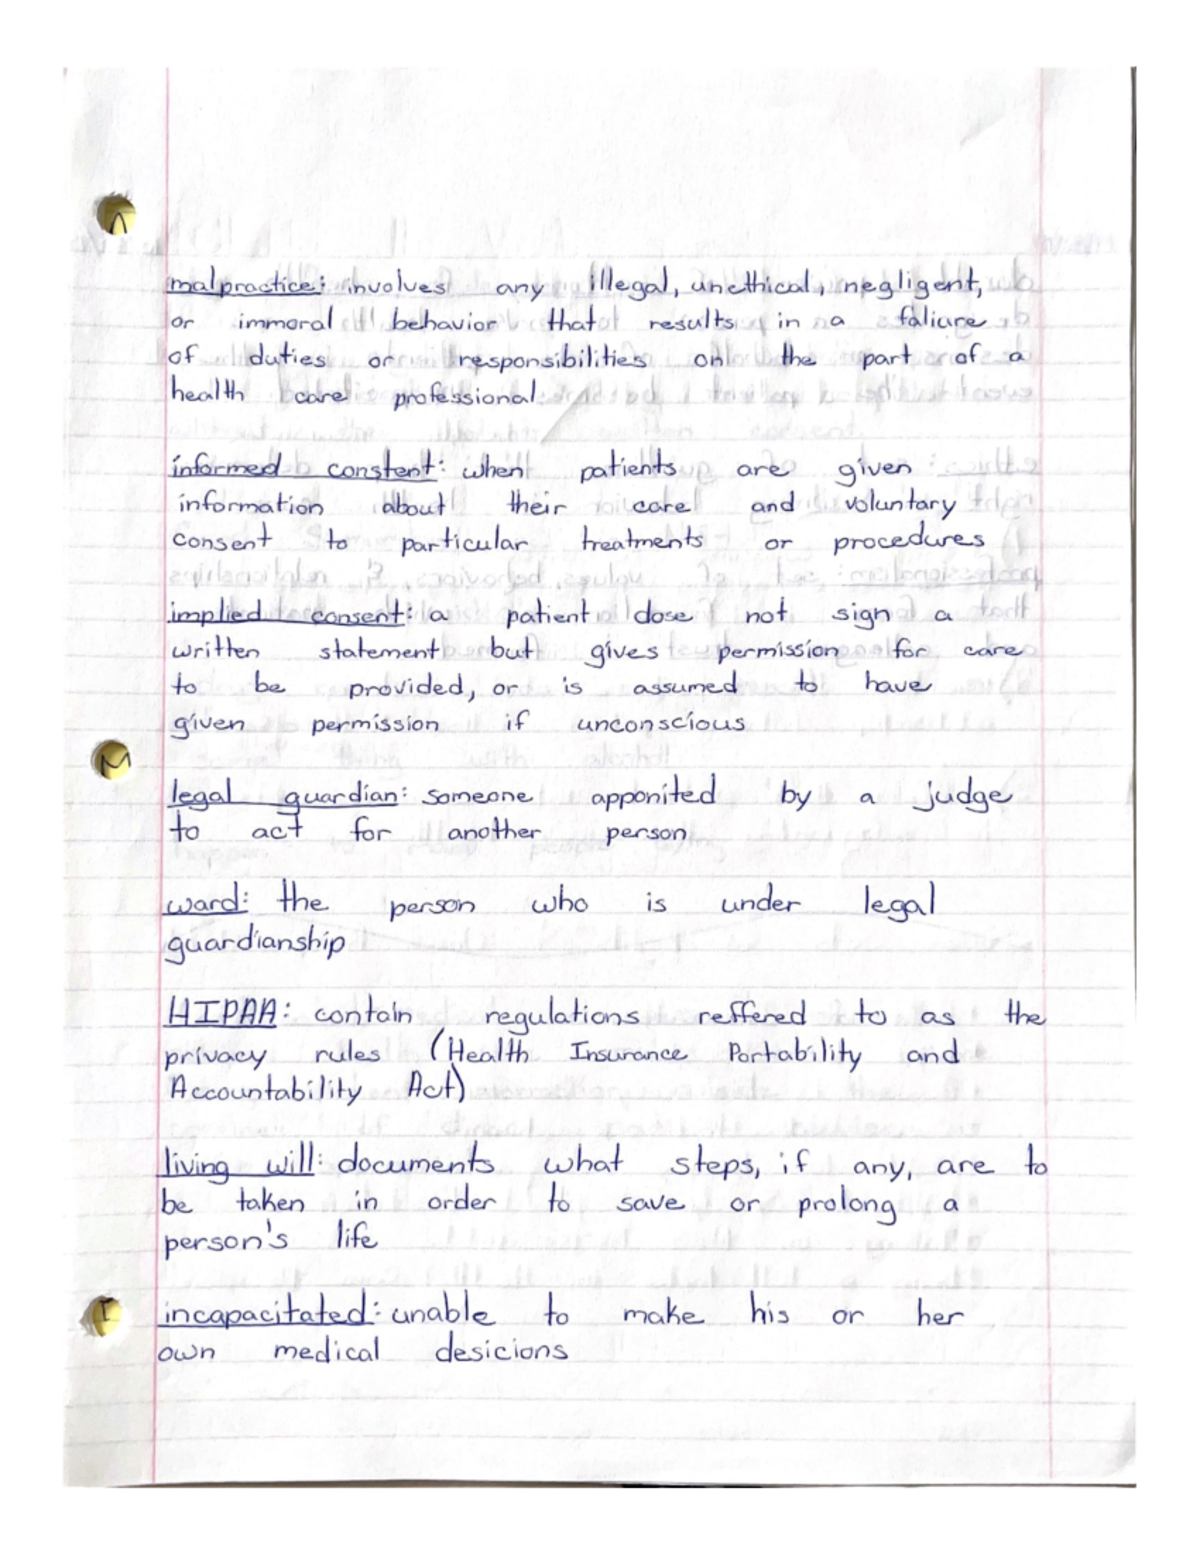 malpractice: involves any illegal, unethical, negligent,
or immoral behavior that results in a faliure
of duties or responsibilities on the part of a
health care professional
informed constent: when patients are given
information about their care and voluntary
consent to particular treatments or procedures
implied consent: a patient dose not sign a
written statement but gives permission for care
to be provided, or is assumed to have
given permission if unconscious
legal guardian: someone apponited by a judge
to act for another person
ward: the person who is under legal
guardianship
HIPAA: contain regulations reffered to as the
privacy rules (Health Insurance Portability and
Accountability Act)
living will: documents what steps, if any, are to
be taken in order to save or prolong a
person's life
incapacitated: unable to make his or her
own medical desicions